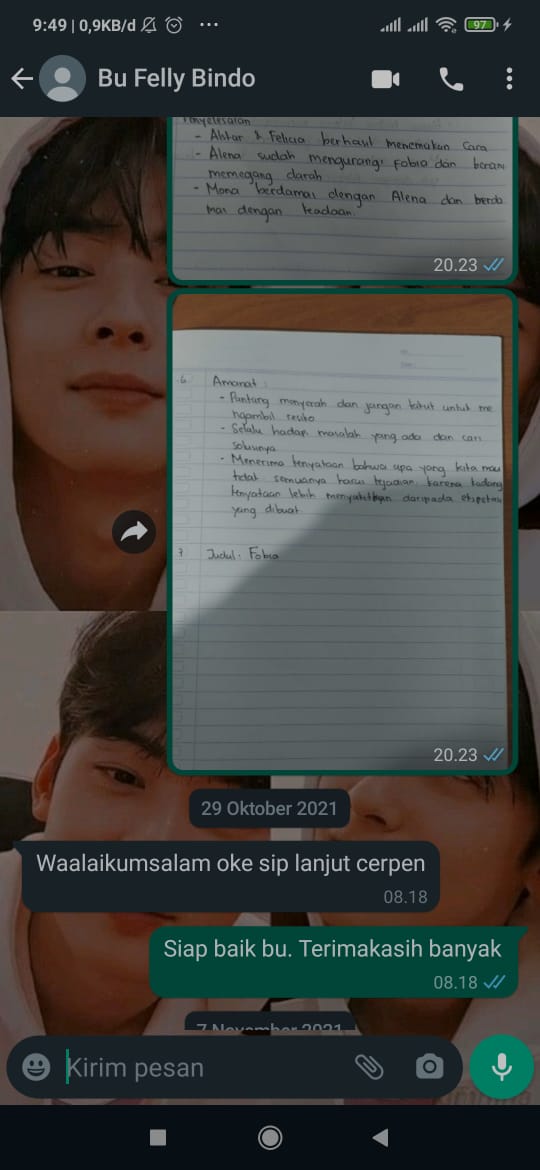 9:49 | 0,9KB/d
97
Bu Felly Bindo
Penyelesaian
- Ahtar & Felicia berhasil menemukan cara
- Alena sudah mengurangi fobia dan berani
memegang darah
- Mona berdamai dengan Alena dan berda
mai dengan keadaan.
20.23
6 Amanat :
- Pantang menyerah dan jangan takut untuk me
ngambil resiko
- Selalu hadapi masalah yang ada dan cari
solusinya
- Menerima kenyataan bahwa apa yang kita mau
tidak semuanya harus kejadian karena kadang
kenyataan lebih menyakitkan daripada ekspetasi
yang dibuat
7 Judul : Fobia
20.23
29 Oktober 2021
Waalaikumsalam oke sip lanjut cerpen
08.18
Siap baik bu. Terimakasih banyak
08.18
7 November 2021
Kirim pesan